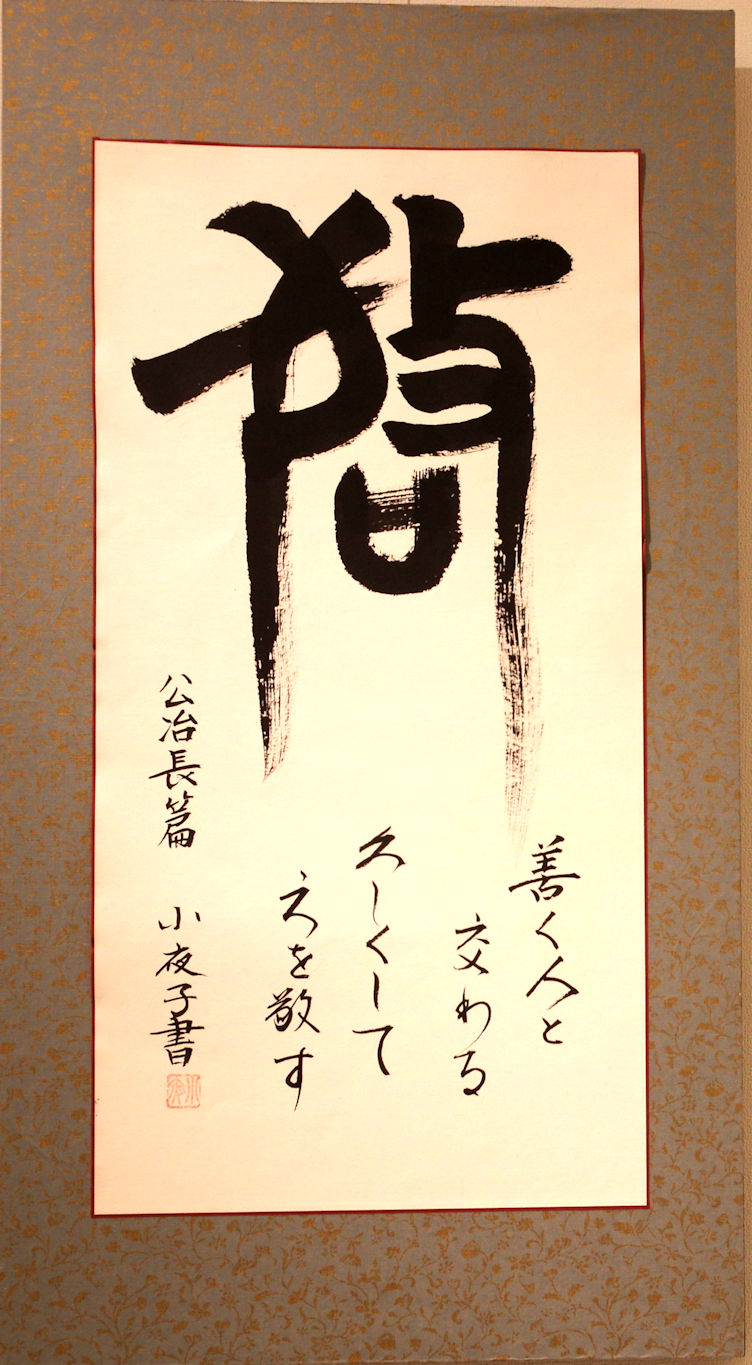 敬
善く人と
交わる
久しくして
之を敬す
公冶長篇 小夜子書